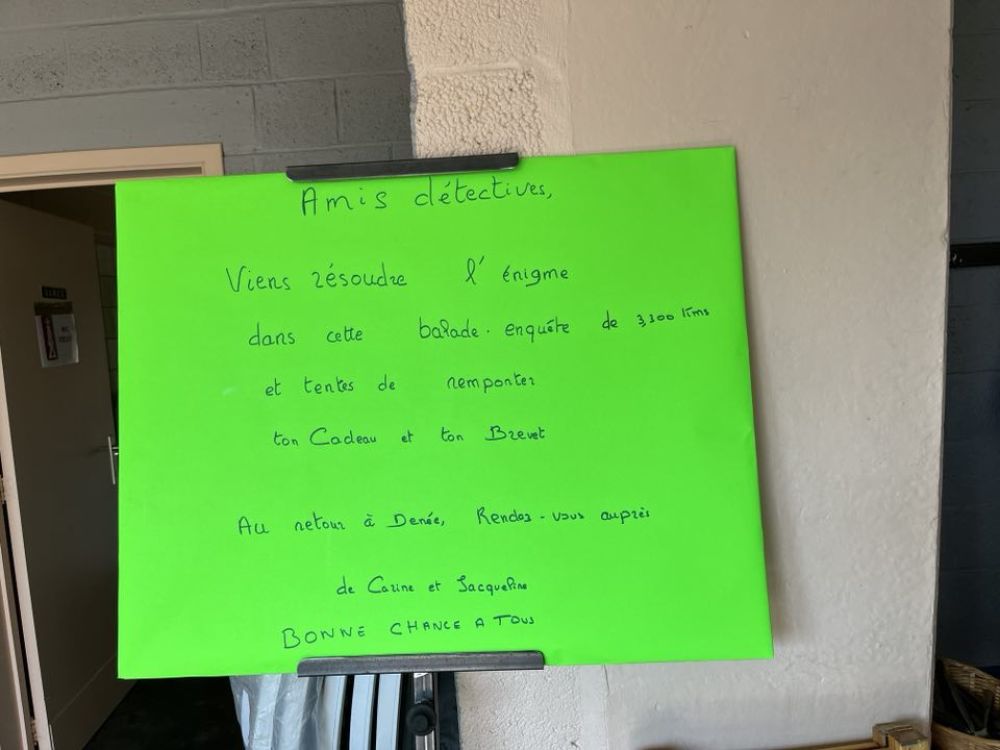 Amis détectives,
Viens résoudre l'énigme
dans cette balade-enquête de 3,300 kms
et tentes de remporter
ton Cadeau et ton Brevet
Au retour à Denée, Rendez-vous auprès
de Carine et Jacqueline
BONNE CHANCE A TOUS